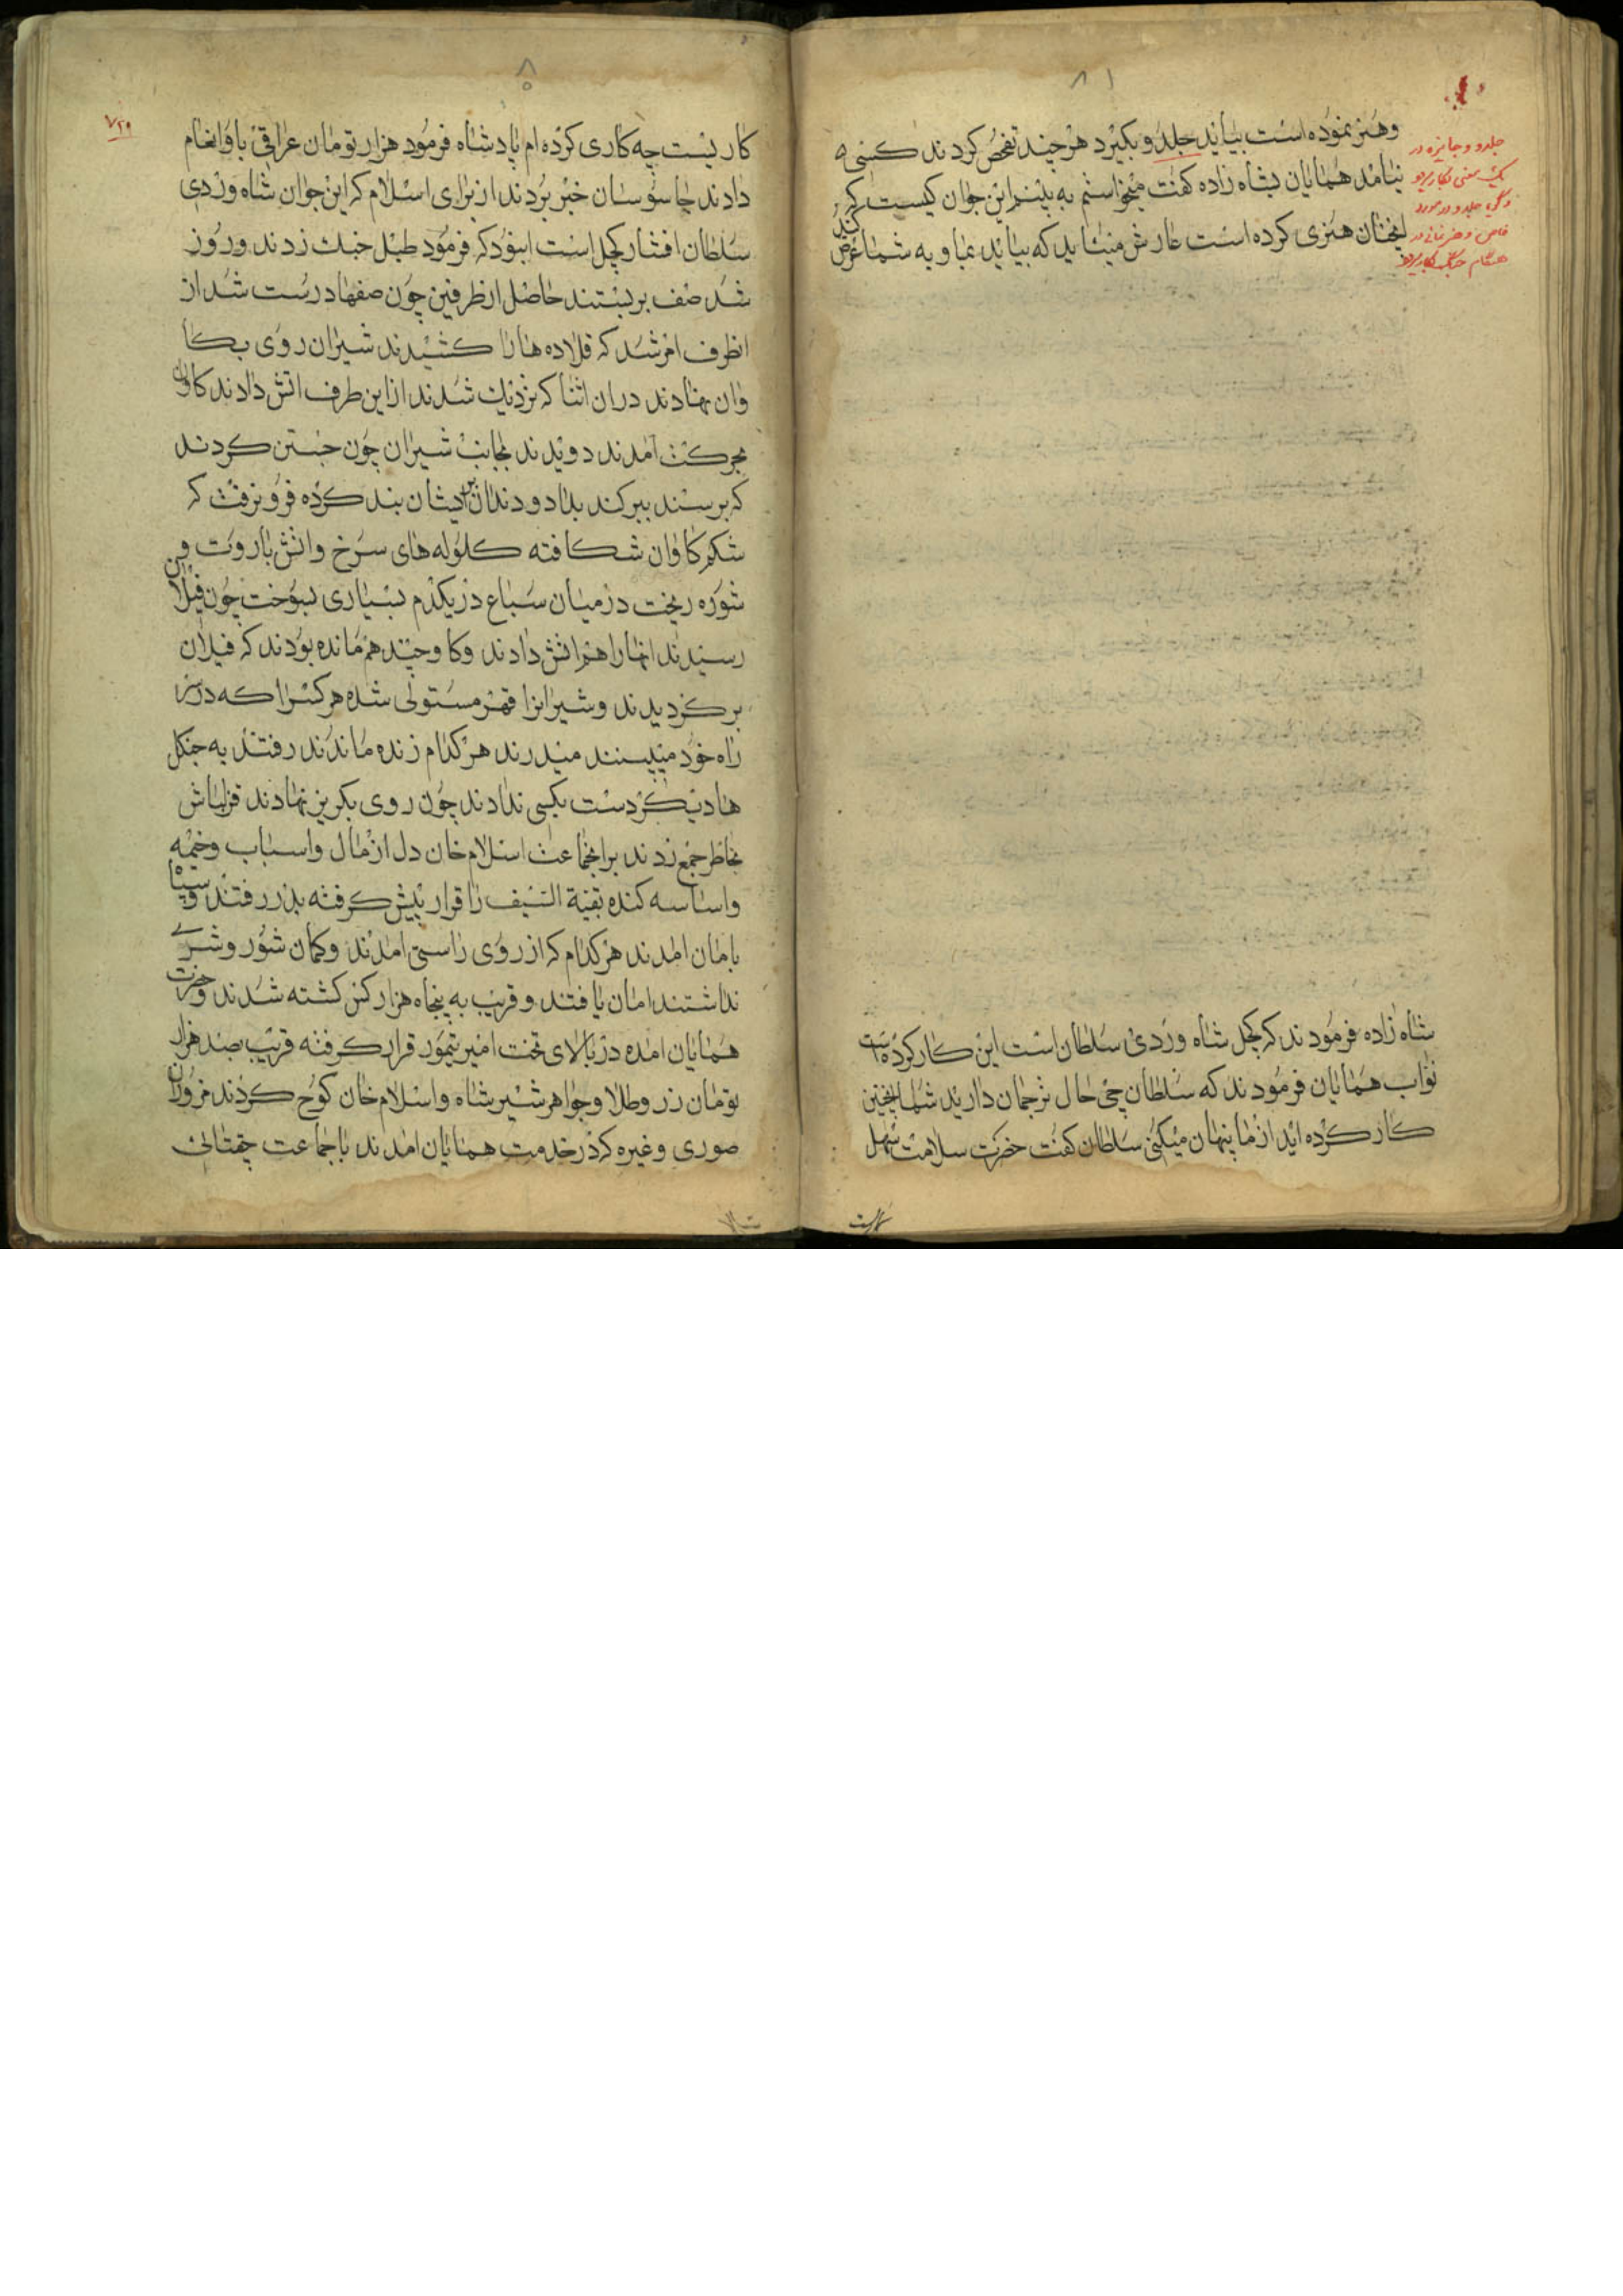 ۸۱
وهنر نموده است بیاید جلد و بکیرد هر چند تفحص کردند کسی
نیامد همایان بشاه زاده کفت میخواستم به بینم این جوان کیست که
اینچنان هنری کرده است عارش میشاید که بیاید بما و به شما عرض کند
جلدو و جایزه در
یک معنی بکار میرود
خاص و
هنکام جنک بکار میرود
شاه زاده فرمودند که کچل شاه وردی سلطان است این کار کرده است
نواب همایان فرمودند که سلطان چی حال ترجمان دارید شما اینچنین
کار کرده اید از ما پنهان میکنی سلطان کفت حضرت سلامت سهل
۸۰
۷۲۹
کار نیست چه کاری کرده ام پادشاه فرمود هزار تومان عراقی باو انعام
دادند جاسوسان خبر بردند از برای اسلام که این جوان شاه وردی
سلطان افشار کچل است فرمود طبل جنک زدند و روز
شد صف بر بستند حاصل از طرفین چون صفها درست شد از
انطرف امر شد که قلاده ها را کشیدند شیران روی بکا
وان نهادند دران اثنا که نزدیک شدند از این طرف اتش دادند کاوان
بحرکت آمدند دویدند بجانب شیران چون جستن کردند
که برسند ایشان بند کرده فرو نرفت که
شکم کاوان شکافته کلوله های سرخ و اتش باروت و
شوره ریخت در میان سباع در یکدم بسیاری بسوخت چون فیلان
رسیدند انها را هم اتش دادند و کاو چند هم مانده بودند که فیلان
بر کردیدند و شیرانرا قهر مستولی شده هر کسرا که در سر
راه خود میبینند میدرند هر کدام زنده ماندند رفتند به جنکل
ها دیکر دست بکسی ندادند چون روی بکریز نهادند قزلباش
بخاطر جمع زدند بر انجماعت اسلام خان دل از مال و اسباب و خیمه
و اساسه کنده بقیة السیف را قرار پیش کرفته بدر رفتند و سپاه
بامان امدند هر کدام که از روی راستی امدند و کمان شور و شری
نداشتند امان یافتند و قریب به پنجاه هزار کس کشته شدند و حضرت
همایان امده در بالای تخت امیر تیمور قرار کرفته قریب صد هزار
تومان زر و طلا و جواهر شیر شاه و اسلام خان کوح کردند
صوری و غیره که در خدمت همایان امدند با جماعت چغتائی